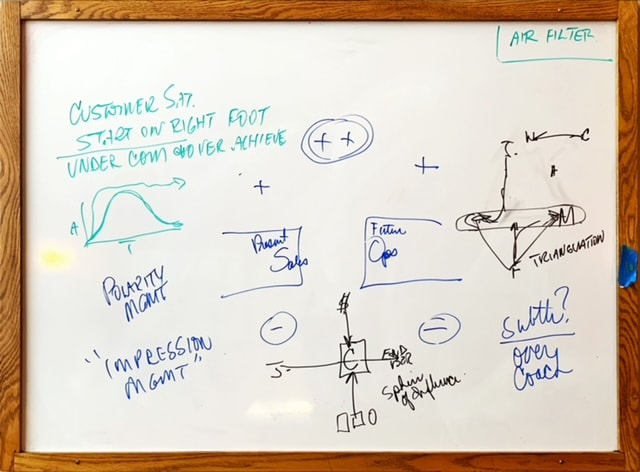 AIR FILTER
CUSTOMER SAT.
START ON RIGHT FOOT
UNDER COM OVER ACHIEVE
++
+
+
A
T
Present
Sales
Future
Ops
C
A
M
F
TRIANGULATION
POLARITY
MGMT
"IMPRESSION
MGMT"
-
$
C
END
USER
Sphere
of Influence
O
Subtle?
OVERT
COACH